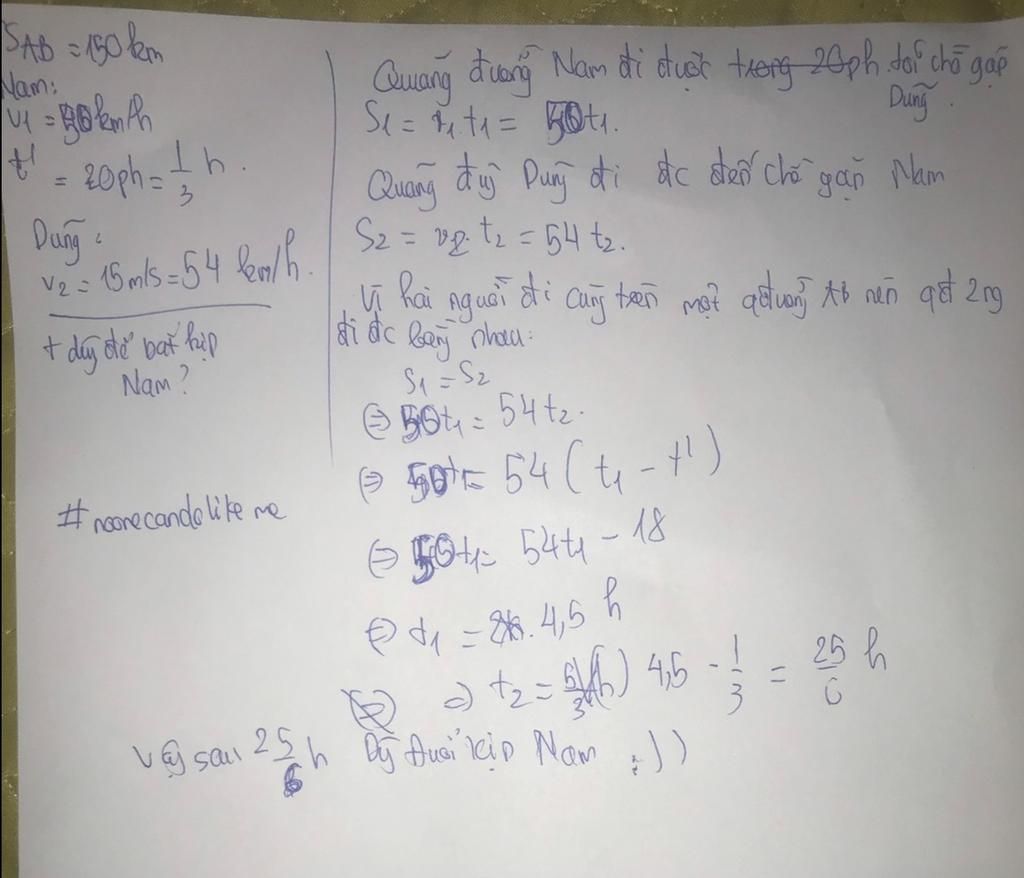 S_AB = 150 km
Nam:
v1 = 50 km/h
t' = 20ph = 1/3 h.
Dũng:
v2 = 15m/s = 54 km/h.
+ dũg để bắt kịp
Nam?
#noonecandolikeme
Quãng đường Nam đi được trong 20ph tới chỗ gặp
Dũng.
S1 = v1.t1 = 50t1.
Quãng đg Dũng đi đc đến chỗ gặp Nam
S2 = v2.t2 = 54t2.
Vì hai người đi cùng trên một qđường AB nên qđ 2ng
đi đc bằng nhau:
S1 = S2
⇔ 50t1 = 54t2.
⇔ 50t1 = 54(t1 - t')
⇔ 50t1 = 54t1 - 18
⇔ t1 = 4,5 h
⇒ t2 = 4,5 - 1/3 = 25/6 h
Vậy sau 25/6 h Dũg đuổi kịp Nam :))